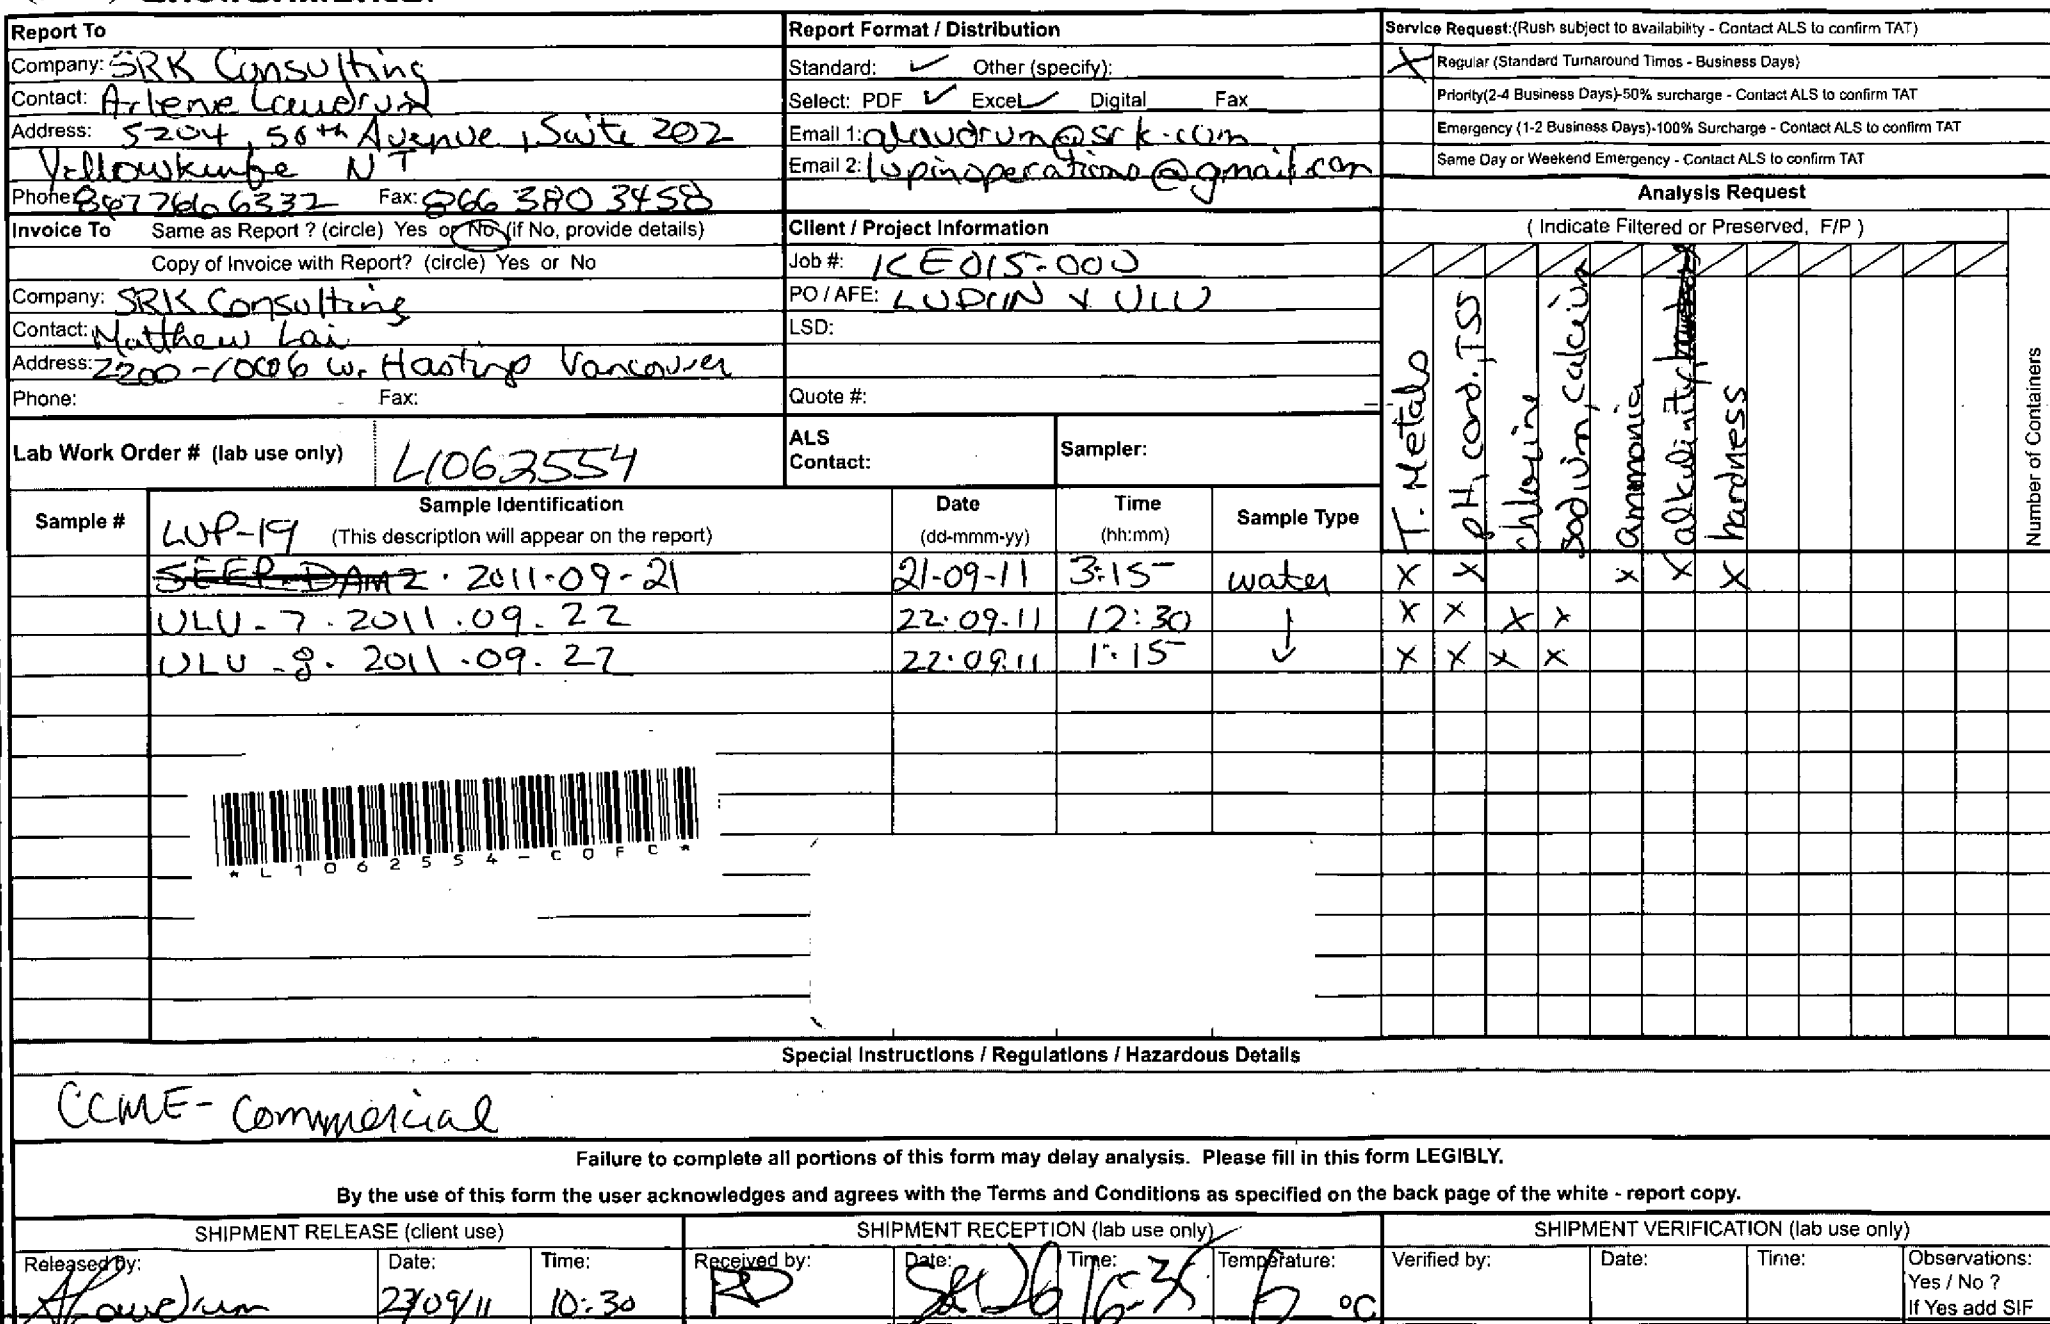 Report To
Company: SRK Consulting
Contact: Arlene Laudrum
Address: 5204, 50th Avenue, Suite 202
Yellowknife NT
Phone: 867 766 6332 Fax: 866 380 3458
Invoice To Same as Report ? (circle) Yes or No (if No, provide details)
Copy of Invoice with Report? (circle) Yes or No
Company: SRK Consulting
Contact: Matthew Lai
Address: 2200-1066 W. Hastings Vancouver
Phone: Fax:
Lab Work Order # (lab use only) L1062554
Report Format / Distribution
Standard: ✓ Other (specify):
Select: PDF ✓ Excel ✓ Digital Fax
Email 1: alaudrum@srk.com
Email 2: lupinoperations@gmail.com
Client / Project Information
Job #: 1CE015-000
PO / AFE: LUPIN & ULU
LSD:
Quote #:
ALS Contact:
Sampler:
Service Request:(Rush subject to availability - Contact ALS to confirm TAT)
X Regular (Standard Turnaround Times - Business Days)
Priority(2-4 Business Days)-50% surcharge - Contact ALS to confirm TAT
Emergency (1-2 Business Days)-100% Surcharge - Contact ALS to confirm TAT
Same Day or Weekend Emergency - Contact ALS to confirm TAT
Analysis Request
( Indicate Filtered or Preserved, F/P )
T. Metals
pH, cond. TSS
chlorine
sodium, calcium
ammonia
alkalinity
hardness
Number of Containers
Sample # Sample Identification Date Time Sample Type
LUP-19 (This description will appear on the report) (dd-mmm-yy) (hh:mm)
SEEP-DAM2 . 2011-09-21 21-09-11 3:15 water X X X X X
ULU-7.2011.09.22 22.09.11 12:30 ↓ X X X X
ULU-8.2011.09.22 22.09.11 1:15 X X X X
*L1062554-COFC*
Special Instructions / Regulations / Hazardous Details
CCME- Commercial
Failure to complete all portions of this form may delay analysis. Please fill in this form LEGIBLY.
By the use of this form the user acknowledges and agrees with the Terms and Conditions as specified on the back page of the white - report copy.
SHIPMENT RELEASE (client use) SHIPMENT RECEPTION (lab use only) SHIPMENT VERIFICATION (lab use only)
Released by: Date: Time: Received by: Date: Time: Temperature: Verified by: Date: Time: Observations:
Yes / No ?
ALaudrum 23/09/11 10:30 RD Sept 26 6 °C If Yes add SIF